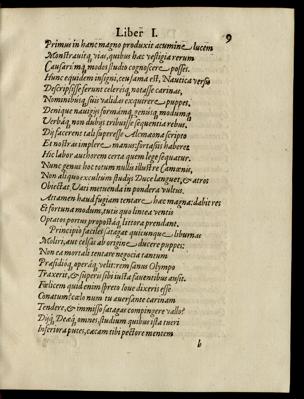 Liber I.
9
Primus in hanc magno produxit acumine lucem
Monstravitq, vias, quibus hæc vestigia rerum
Causarumq; modos studio cognoscere posses.
Hunc equidem insigni, ceu fama est, Nautica versu
Descripsisse ferunt celerisq; notasse carinas,
Nominibusq, suis validas exquirere puppes.
Denique navirugis formamq genusq; modumq
Verbaq, non dubijs tribuisse sequentia rebus.
Dij facerent tali superesse Alcmæona scripto
Et nostras implere manus: forsitsi haberet
Hic labor authorem certa quem lege sequatur.
Nunc genus hoc totum nullis illustre Camœnis,
Non aliquo excultum studijs Duce languet, & atros
Obiectat Vari metuenda in pondera vultus.
Attamen haud fugiam tentare hæc magna: dabit res
Et fortuna modum, tutis quo lintea ventis
Optatos portus propostaq; litora prendant.
Principio faciles satagas quicunque liburnas
Moliri, aut celsas ab origine ducere puppes:
Non ea mortali tentare negocia tantum
Præsidioq, operaq velit: rem sanus Olympo
Traxerit, & superis sibi iusta faventibus ausit.
Fœlicem quid enim spreto Ioue dixeris esse
Conatum? cœlo num tu aversante carinam
Tendere, & immisso satagas compingere vallo?
Dijq, Deæq, omnes, studium quibus ista tueri
Inseriora putes, cæcam tibi pectore mentem
b